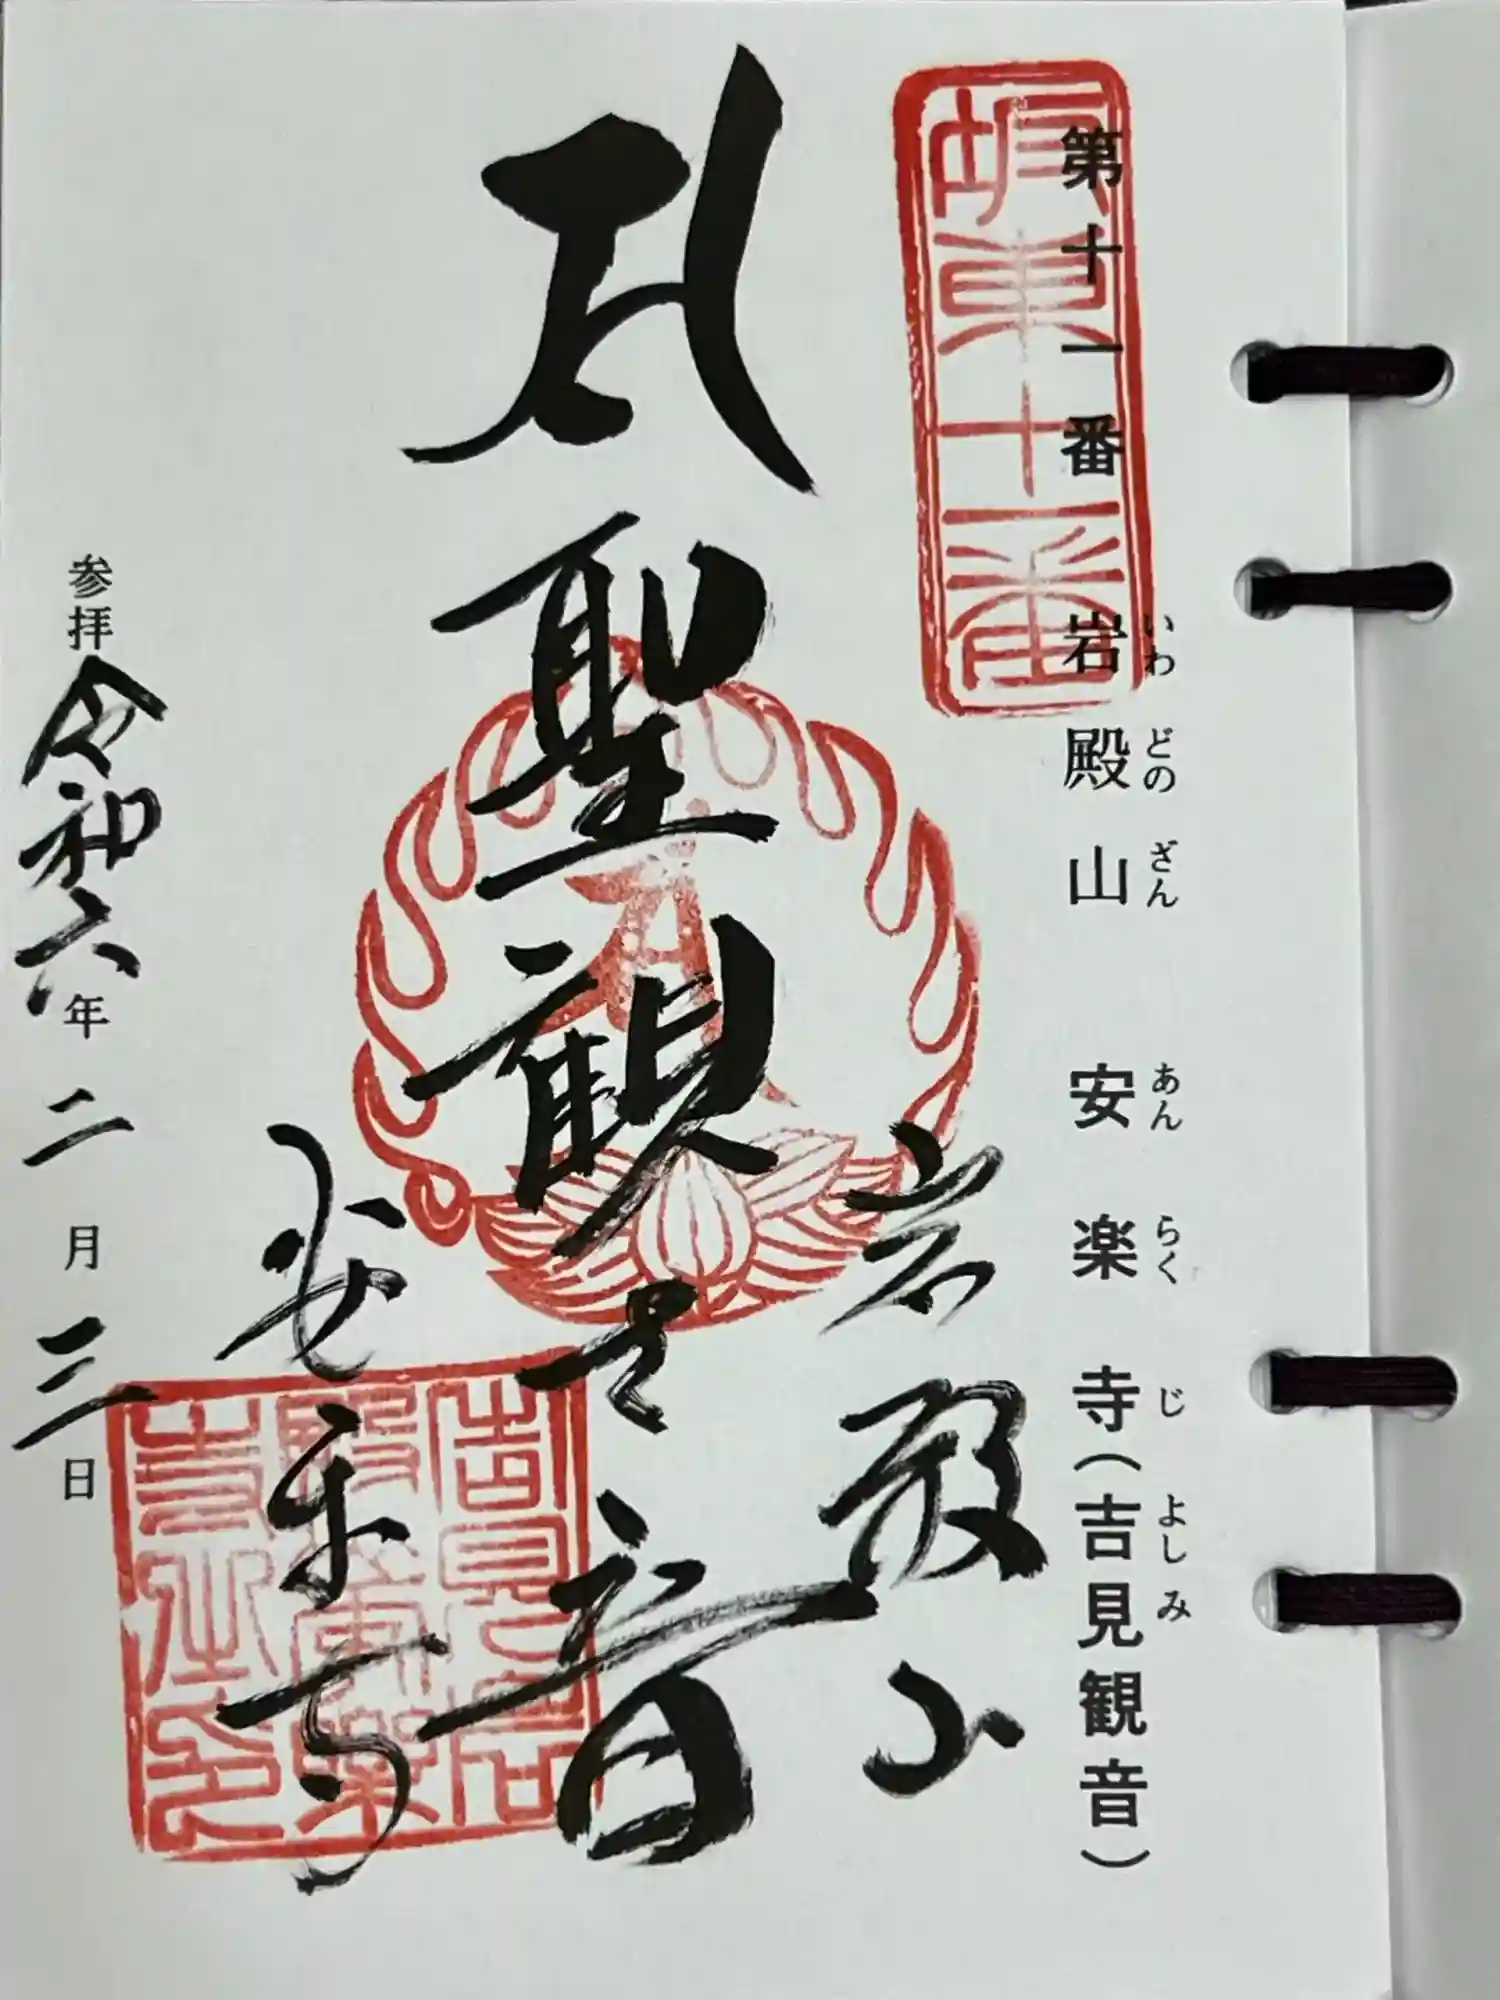 第十一番 岩殿山 安楽寺(吉見観音)
いわ どの ざん あん らく じ よし み
坂東十一番
岩殿山
聖観世音
安楽寺
参拝 令和六年二月三日